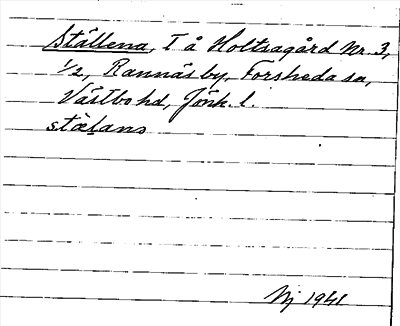 Ställena, T å Holtsagård Nr. 3,
1/2, Rannäs by, Forsheda sn,
Västbo hd, Jönk. l.
stælans
Nj 1941